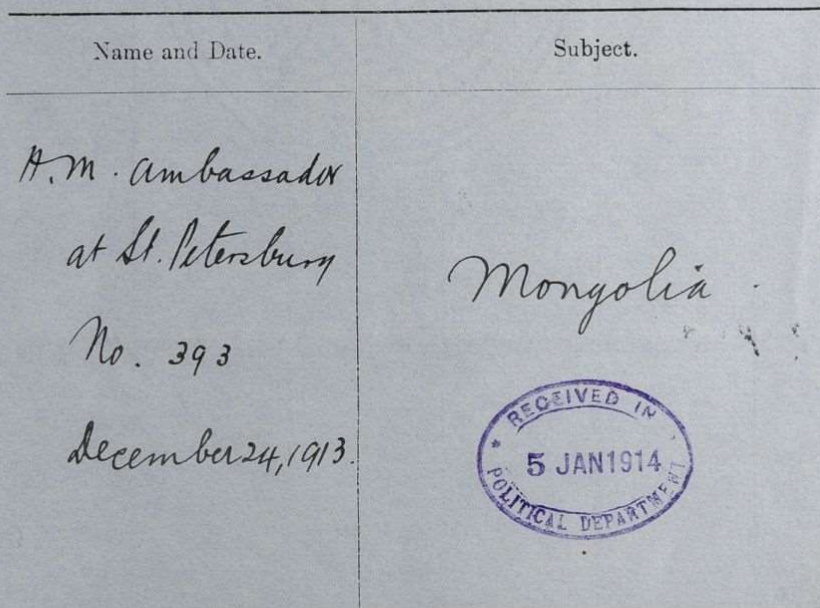 Name and Date.
Subject.
H.M. Ambassador
at St. Petersburg
No. 393
December 24, 1913.
Mongolia.
RECEIVED IN
5 JAN 1914
POLITICAL DEPARTMENT